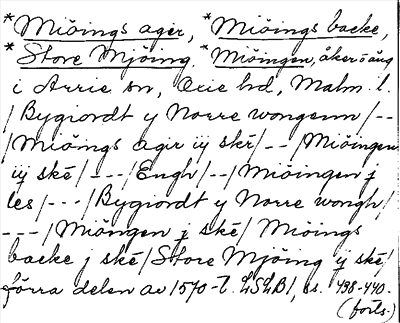 *Miöings ager, *Miöings backe,
*Store Mjöing, *Miöingen, åker o äng
i Arrie sn, Oxie hd, Malm. l.
/Bygiordt y Norre wongenn/--
/Miöings agir iij skr/--/Miöingen
iij ske/---/Engh/--/Miöingen j
les/---/Bygiordt y Norre wongh/
---/Miöngen j ske/Miöings
backe j ske/Store Mjöing ij ske/
förra delen av 1570-t. LSLB1, ss. 438-440.
(forts.)